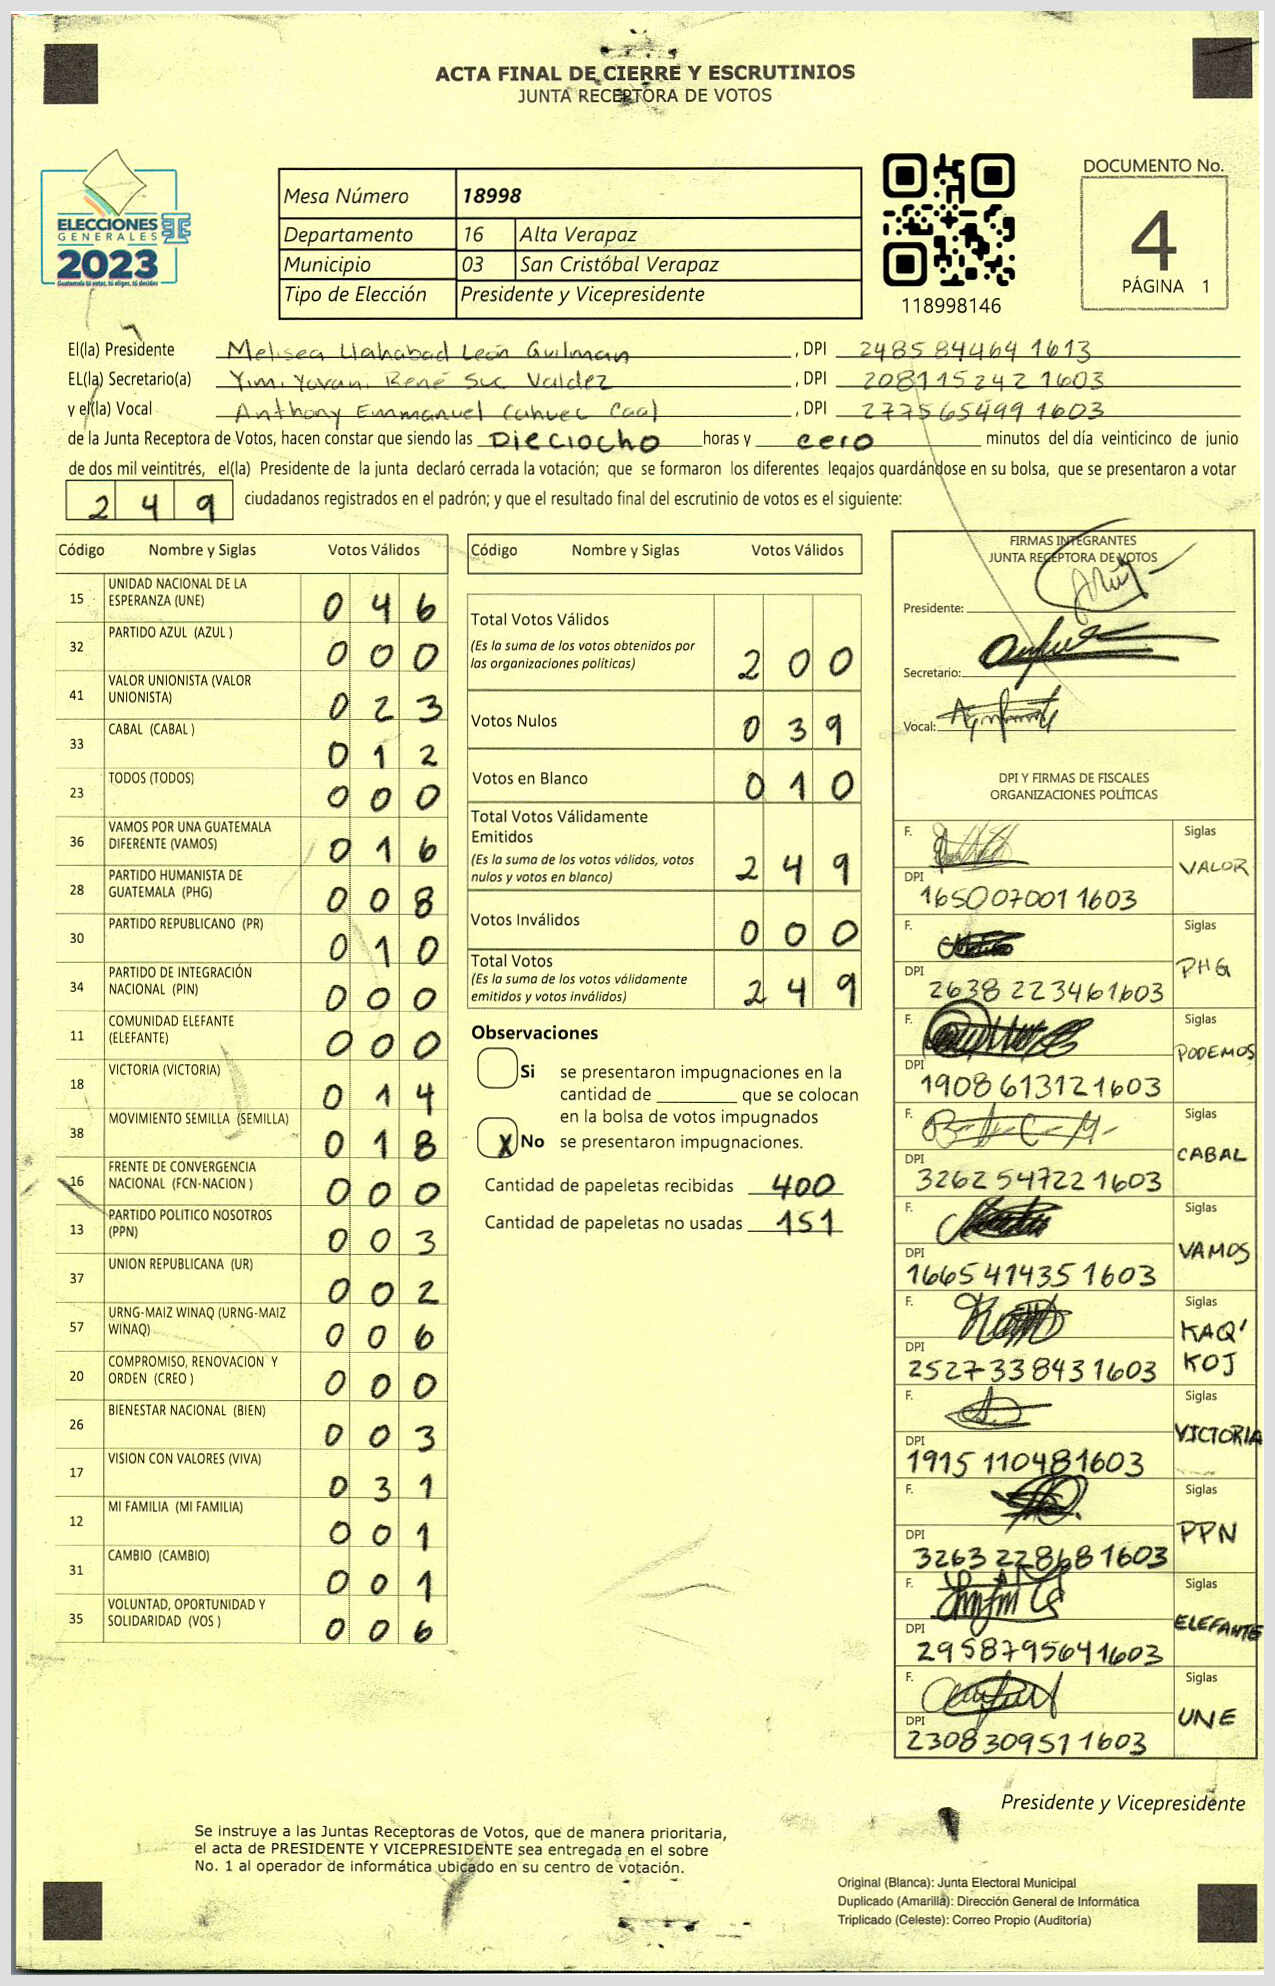 ACTA FINAL DE CIERRE Y ESCRUTINIOS
JUNTA RECEPTORA DE VOTOS
ELECCIONES
GENERALES
2023
Guatemala tú votas, tú eliges, tú decides
Mesa Número 18998
Departamento 16 Alta Verapaz
Municipio 03 San Cristóbal Verapaz
Tipo de Elección Presidente y Vicepresidente
118998146
DOCUMENTO No.
4
PÁGINA 1
El(la) Presidente Melisea Llahabad León Guilman, DPI 2485 84464 1613
EL(la) Secretario(a) Yimi Yovani René Suc Valdez, DPI 2081 15242 1603
y el(la) Vocal Anthony Emmanuel Cahuec Caal, DPI 2775 65499 1603
de la Junta Receptora de Votos, hacen constar que siendo las Dieciocho horas y cero minutos del día veinticinco de junio
de dos mil veintitrés, el(la) Presidente de la junta declaró cerrada la votación; que se formaron los diferentes legajos quardándose en su bolsa, que se presentaron a votar
249 ciudadanos registrados en el padrón; y que el resultado final del escrutinio de votos es el siguiente:
Código Nombre y Siglas Votos Válidos
15 UNIDAD NACIONAL DE LA ESPERANZA (UNE) 046
32 PARTIDO AZUL (AZUL ) 000
41 VALOR UNIONISTA (VALOR UNIONISTA) 023
33 CABAL (CABAL ) 012
23 TODOS (TODOS) 000
36 VAMOS POR UNA GUATEMALA DIFERENTE (VAMOS) 016
28 PARTIDO HUMANISTA DE GUATEMALA (PHG) 008
30 PARTIDO REPUBLICANO (PR) 010
34 PARTIDO DE INTEGRACIÓN NACIONAL (PIN) 000
11 COMUNIDAD ELEFANTE (ELEFANTE) 000
18 VICTORIA (VICTORIA) 014
38 MOVIMIENTO SEMILLA (SEMILLA) 018
16 FRENTE DE CONVERGENCIA NACIONAL (FCN-NACION ) 000
13 PARTIDO POLITICO NOSOTROS (PPN) 003
37 UNION REPUBLICANA (UR) 002
57 URNG-MAIZ WINAQ (URNG-MAIZ WINAQ) 006
20 COMPROMISO, RENOVACION Y ORDEN (CREO ) 000
26 BIENESTAR NACIONAL (BIEN) 003
17 VISION CON VALORES (VIVA) 031
12 MI FAMILIA (MI FAMILIA) 001
31 CAMBIO (CAMBIO) 001
35 VOLUNTAD, OPORTUNIDAD Y SOLIDARIDAD (VOS ) 006
Código Nombre y Siglas Votos Válidos
Total Votos Válidos 200
(Es la suma de los votos obtenidos por
las organizaciones politicas)
Votos Nulos 039
Votos en Blanco 010
Total Votos Válidamente
Emitidos 249
(Es la suma de los votos válidos, votos
nulos y votos en blanco)
Votos Inválidos 000
Total Votos 249
(Es la suma de los votos válidamente
emitidos y votos inválidos)
Observaciones
Si se presentaron impugnaciones en la
cantidad de ________ que se colocan
en la bolsa de votos impugnados
X No se presentaron impugnaciones.
Cantidad de papeletas recibidas 400
Cantidad de papeletas no usadas 151
FIRMAS INTEGRANTES
JUNTA RECEPTORA DE VOTOS
Presidente:
Secretario:
Vocal:
DPI Y FIRMAS DE FISCALES
ORGANIZACIONES POLÍTICAS
F. Siglas VALOR
DPI 165007001 1603
F. Siglas PHG
DPI 2638 22346 1603
F. Siglas PODEMOS
DPI 1908 61312 1603
F. Siglas CABAL
DPI 3262 54722 1603
F. Siglas VAMOS
DPI 1665 41435 1603
F. Siglas KAQ' KOJ
DPI 2527 33843 1603
F. Siglas VICTORIA
DPI 1915 11048 1603
F. Siglas PPN
DPI 3263 22868 1603
F. Siglas ELEFANTE
DPI 2958 79564 1603
F. Siglas UNE
DPI 2308 30951 1603
Presidente y Vicepresidente
Se instruye a las Juntas Receptoras de Votos, que de manera prioritaria,
el acta de PRESIDENTE Y VICEPRESIDENTE sea entregada en el sobre
No. 1 al operador de informática ubicado en su centro de votación.
Original (Blanca): Junta Electoral Municipal
Duplicado (Amarilla): Dirección General de Informática
Triplicado (Celeste): Correo Propio (Auditoría)